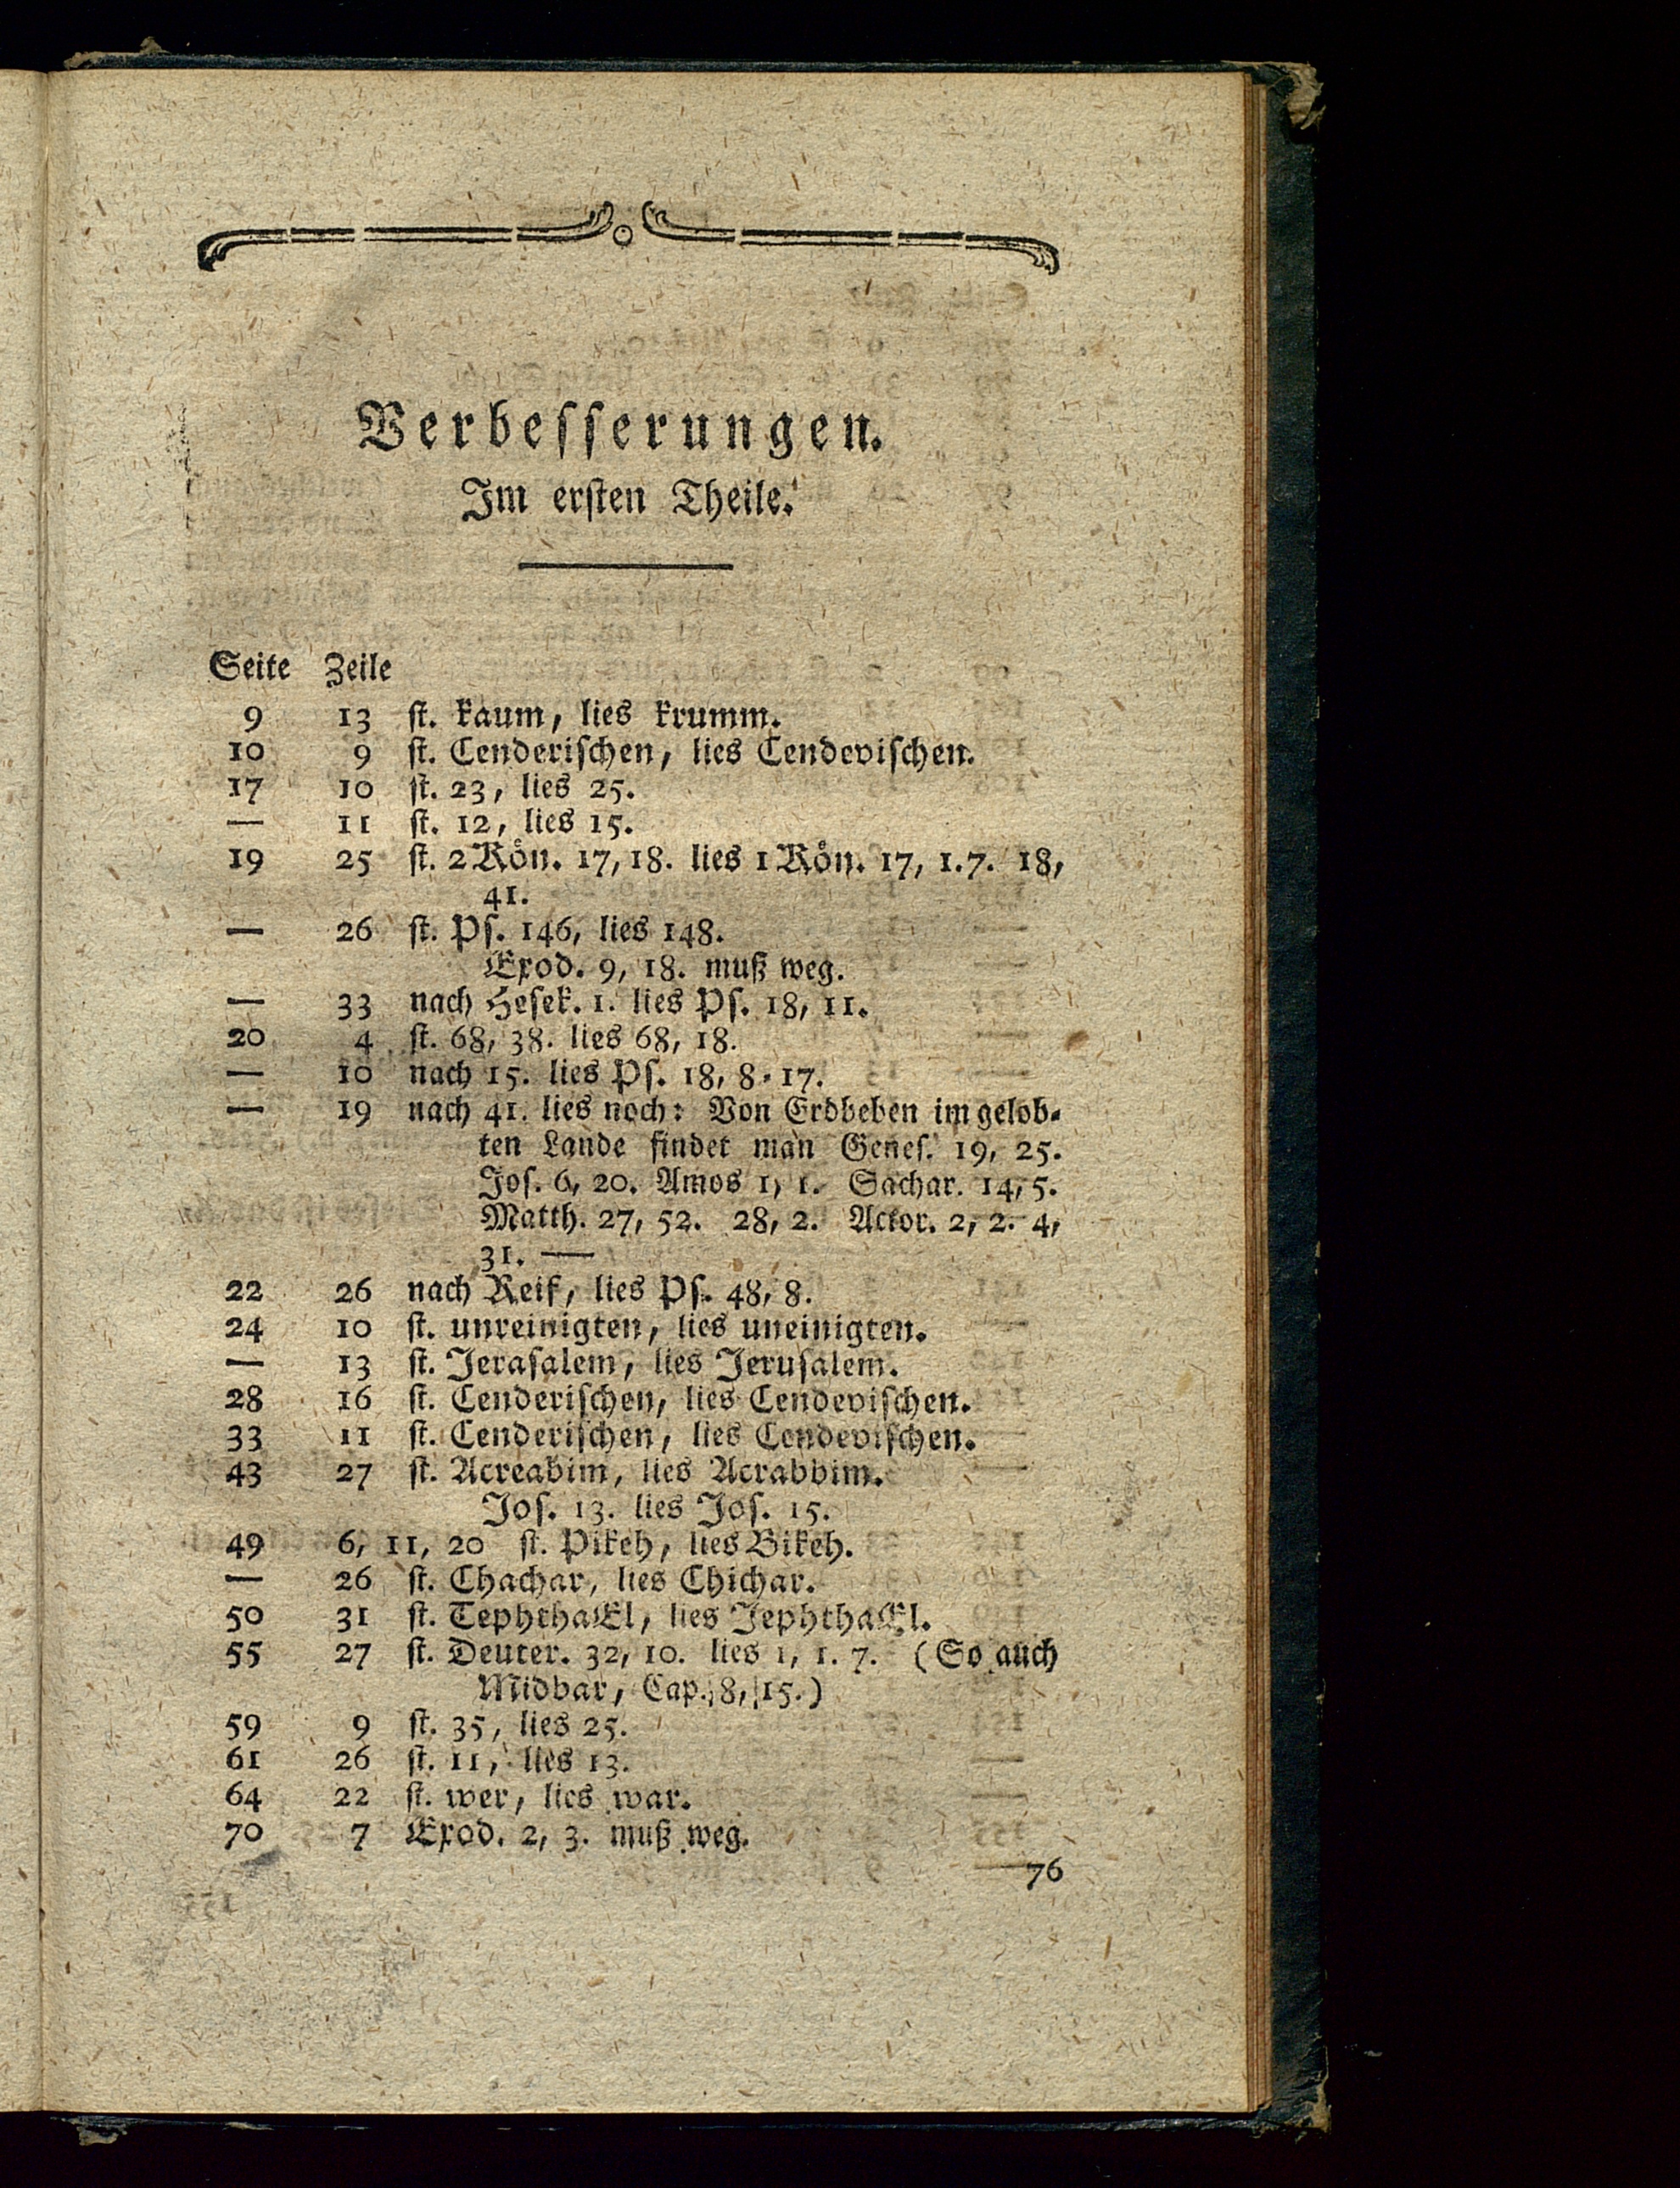 Verbesserungen.
Im ersten Theile.
Seite Zeile
9 13 st. kaum, lies krumm.
10 9 st. Cenderischen, lies Cendevischen.
17 10 st. 23, lies 25.
— 11 st. 12, lies 15.
19 25 st. 2 Kön. 17, 18. lies 1 Kön. 17, 1. 7. 18,
41.
— 26 st. Ps. 146, lies 148.
Exod. 9, 18. muß weg.
— 33 nach Hesek. 1. lies Ps. 18, 11.
20 4 st. 68, 38. lies 68, 18.
— 10 nach 15. lies Ps. 18, 8-17.
— 19 nach 41. lies noch: Von Erdbeben im gelob-
ten Lande findet man Genes. 19, 25.
Jos. 6, 20. Amos 1, 1. Sachar. 14, 5.
Matth. 27, 52. 28, 2. Actor. 2, 2. 4,
31. —
22 26 nach Reif, lies Ps. 48, 8.
24 10 st. unreinigten, lies uneinigten.
— 13 st. Jerasalem, lies Jerusalem.
28 16 st. Cenderischen, lies Cendevischen.
33 11 st. Cenderischen, lies Cendevischen.
43 27 st. Acreabim, lies Acrabbim.
Jos. 13. lies Jos. 15.
49 6, 11, 20 st. Pikeh, lies Bikeh.
— 26 st. Chachar, lies Chichar.
50 31 st. TephthaEl, lies JephthaEl.
55 27 st. Deuter. 32, 10. lies 1, 1. 7. (So auch
Midbar, Cap. 8, 15.)
59 9 st. 35, lies 25.
61 26 st. 11, lies 13.
64 22 st. wer, lies war.
70 7 Exod. 2, 3. muß weg.
76